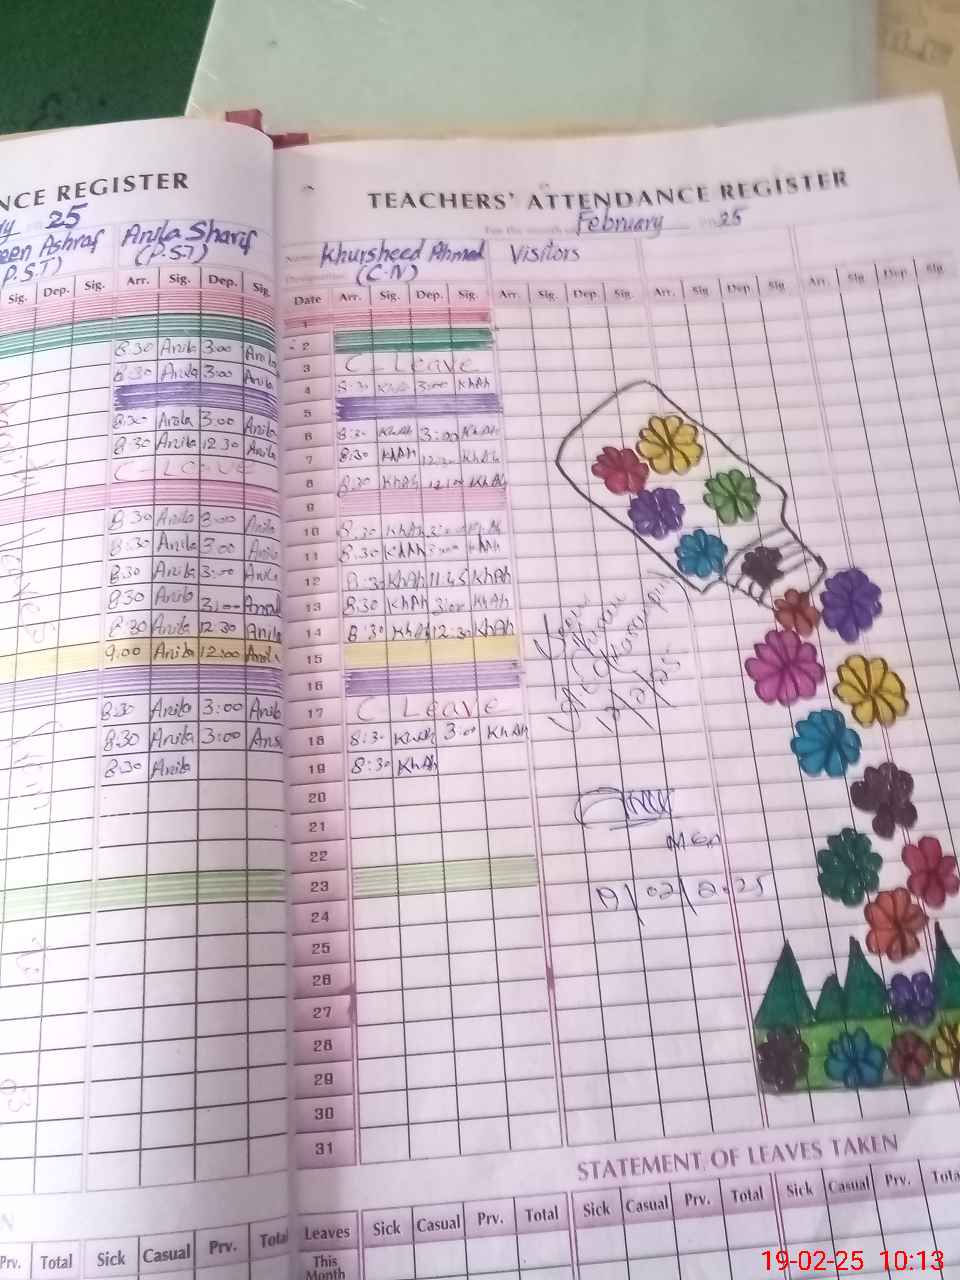 NCE REGISTER
25
een Ashraf Anila Sharif
P.S.T) (P.S.T)
Sig. Dep. Sig. Arr. Sig. Dep. Sig.
8:30 Anila 3:00 Anila
8:30 Anila 3:00 Anila
8:30 Anila 3:00 Anila
8:30 Anila 12:30 Anila
C-Leave
8:30 Anila 3:00 Anila
8:30 Anila 3:00 Anila
8:30 Anila 3:00 Anila
8:30 Anila 3:00
8:30 Anila 12:30 Anila
9:00 Anila 12:00 Anila
8:30 Anila 3:00 Anila
8:30 Anila 3:00
8:30 Anila
Prv. Total Sick Casual Prv. Total
TEACHERS' ATTENDANCE REGISTER
For the month of February 25
Name Khursheed Ahmed Visitors
Designation (C-IV)
Date Arr. Sig. Dep. Sig. Arr. Sig. Dep. Sig. Arr. Sig. Dep. Sig. Arr. Sig. Dep. Sig.
1
2
3 C-Leave
4 8:30 KhAh 3:00 KhAh
5
6 8:30 KhAh 3:00 KhAh
7 8:30 KhAh 12:30 KhAh
8 8:30 KhAh KhAh
9
10 8:30 KhAh 3:00 KhAh
11 8:30 KhAh 3:00 KhAh
12 8:30 KhAh 11:45 KhAh
13 8:30 KhAh 3:00 KhAh
14 8:30 KhAh 12:30 KhAh
15
16
17 C Leave
18 8:30 KhAh 3:00 KhAh
19 8:30 KhAh
20
21
22
23
24
25
26
27
28
29
30
31
MEA
02/2025
STATEMENT OF LEAVES TAKEN
Leaves Sick Casual Prv. Total Sick Casual Prv. Total Sick Casual Prv. Total
This Month
19-02-25 10:13